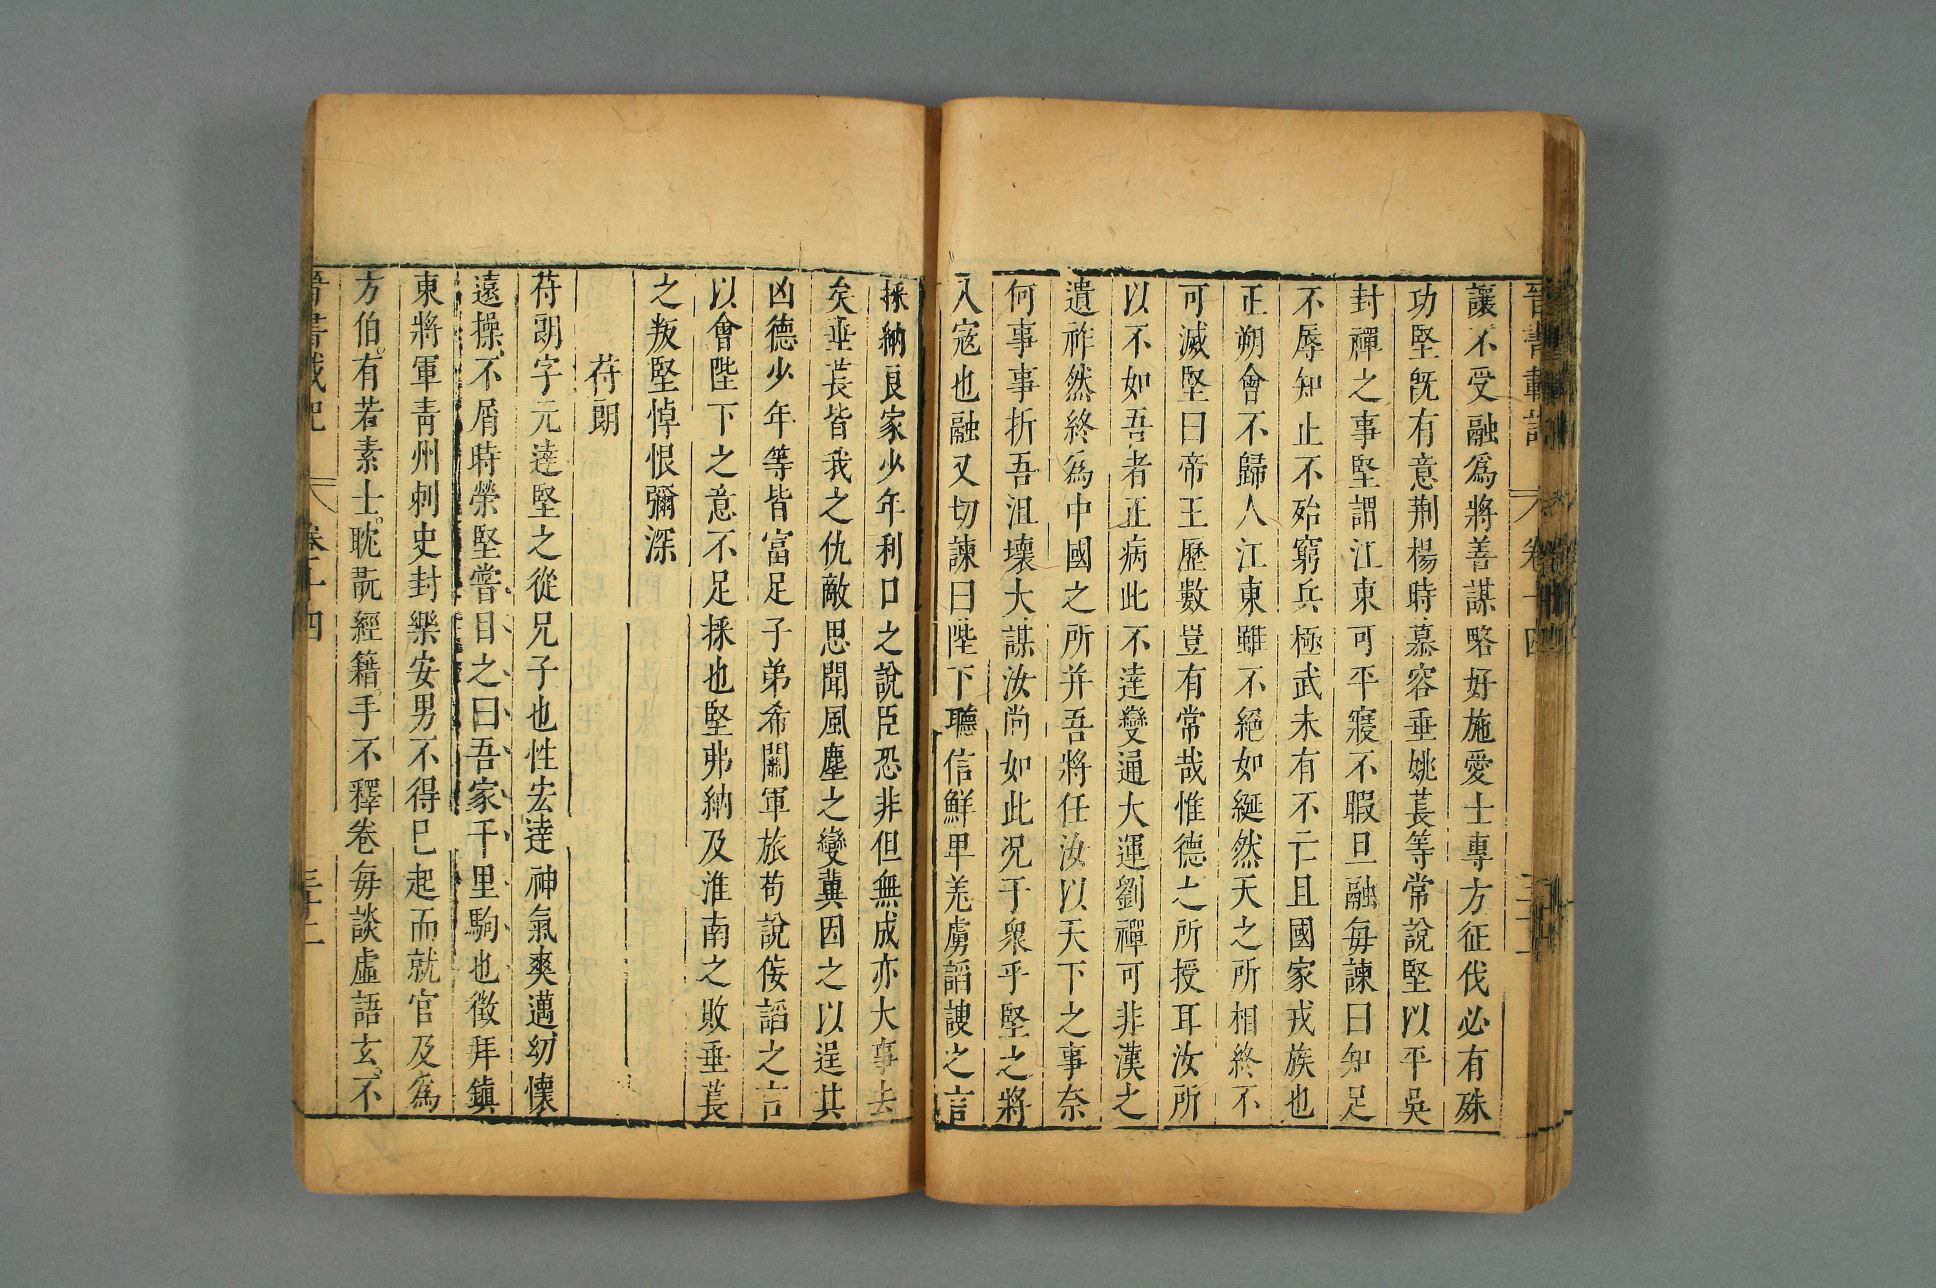 晉書載記 卷十四 三十一
讓不受融爲將善謀略好施愛士專方征伐必有殊
功堅既有意荆楊時慕容垂姚萇等常說堅以平吳
封禪之事堅謂江東可平寢不暇旦融每諫曰知足
不辱知止不殆窮兵極武未有不亡且國家戎族也
正朔會不歸人江東雖不絕如綖然天之所相終不
可滅堅曰帝王歷數豈有常哉惟德之所授耳汝所
以不如吾者正病此不達變通大運劉禪可非漢之
遺祚然終爲中國之所并吾將任汝以天下之事奈
何事事折吾沮壞大謀汝尚如此况于衆乎堅之將
入寇也融又切諫曰陛下聽信鮮卑羌虜諂諛之言
採納良家少年利口之說臣恐非但無成亦大事去
矣垂萇皆我之仇敵思聞風塵之變冀因之以逞其
凶德少年等皆富足子弟希關軍旅苟說佞諂之言
以會陛下之意不足採也堅弗納及淮南之敗垂萇
之叛堅悼恨彌深
苻朗
苻朗字元達堅之從兄子也性宏達神氣爽邁幼懷
遠操不屑時榮堅嘗目之曰吾家千里駒也徵拜鎮
東將軍青州刺史封樂安男不得已起而就官及爲
方伯有若素士耽翫經籍手不釋卷每談虛語玄不
晉書載記 卷十四 三十二